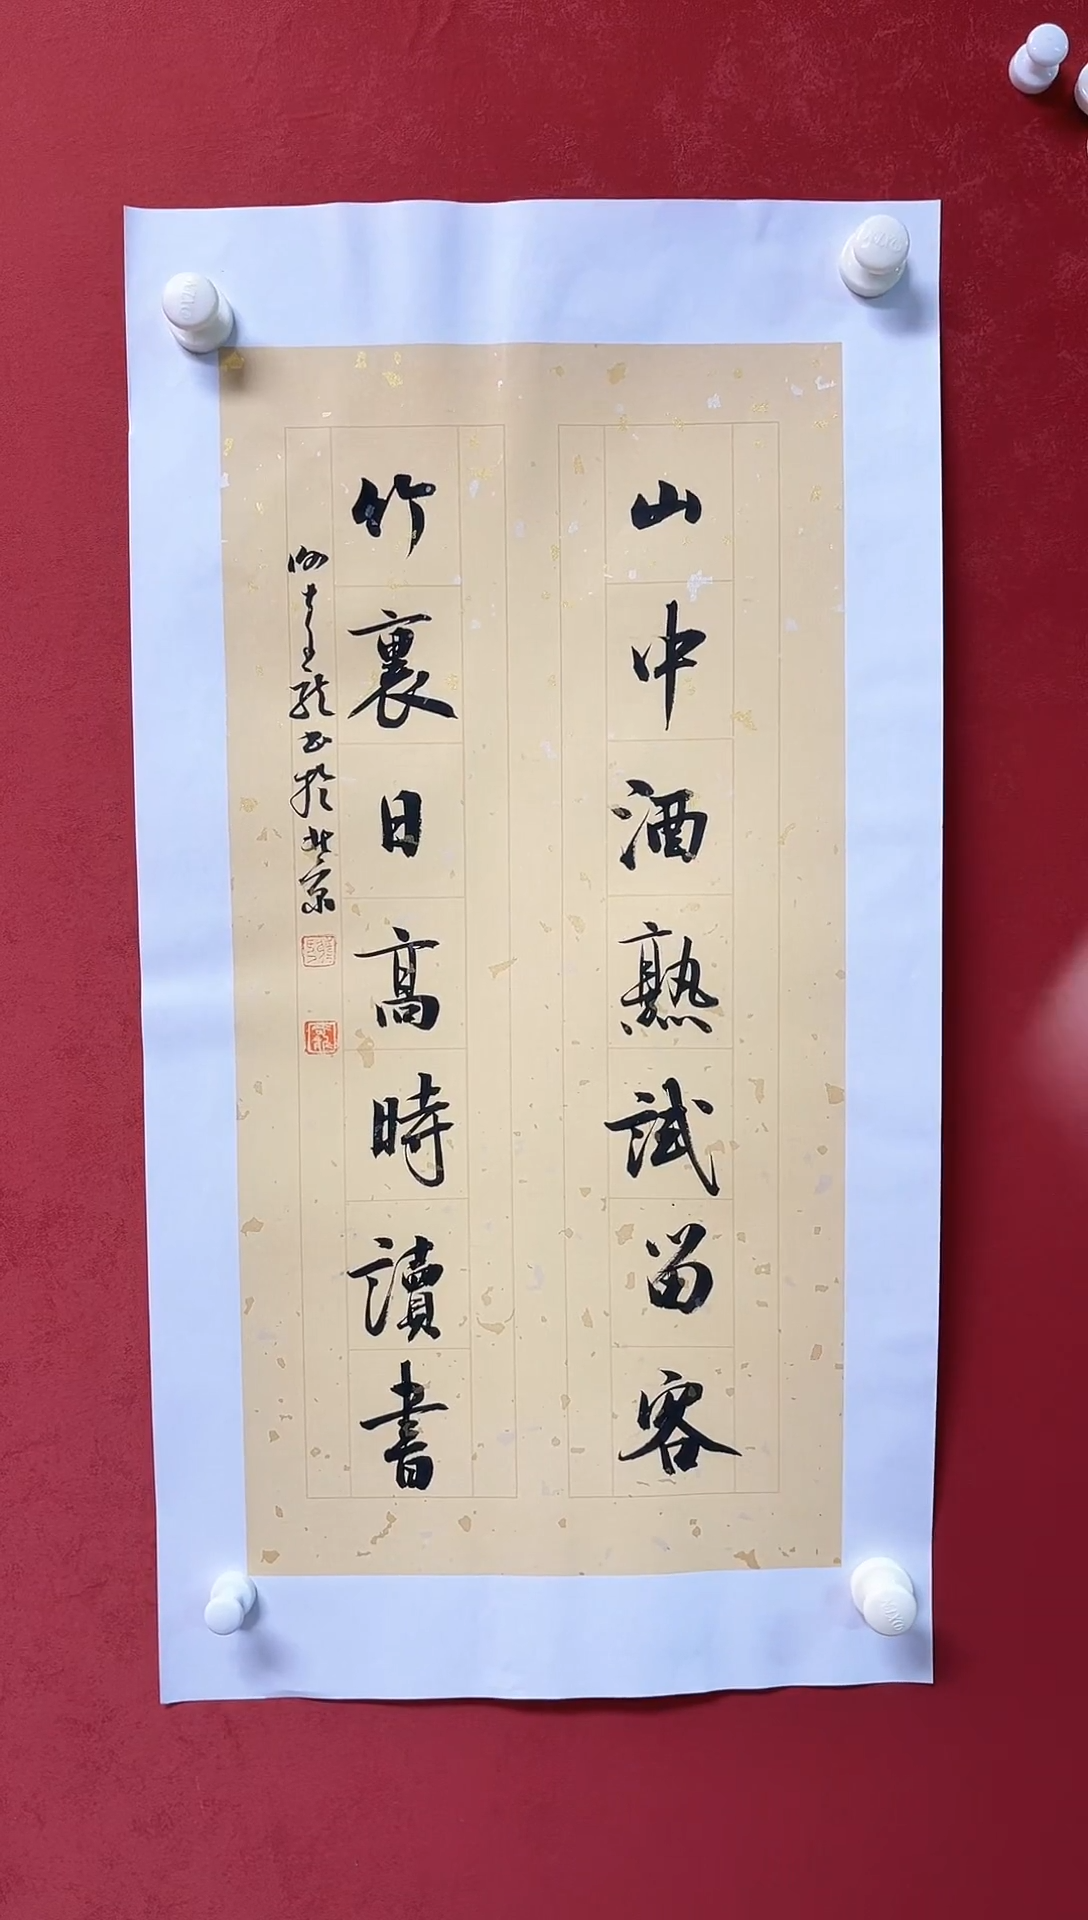 山中酒熟試留客
竹裏日高時讀書
書於北京